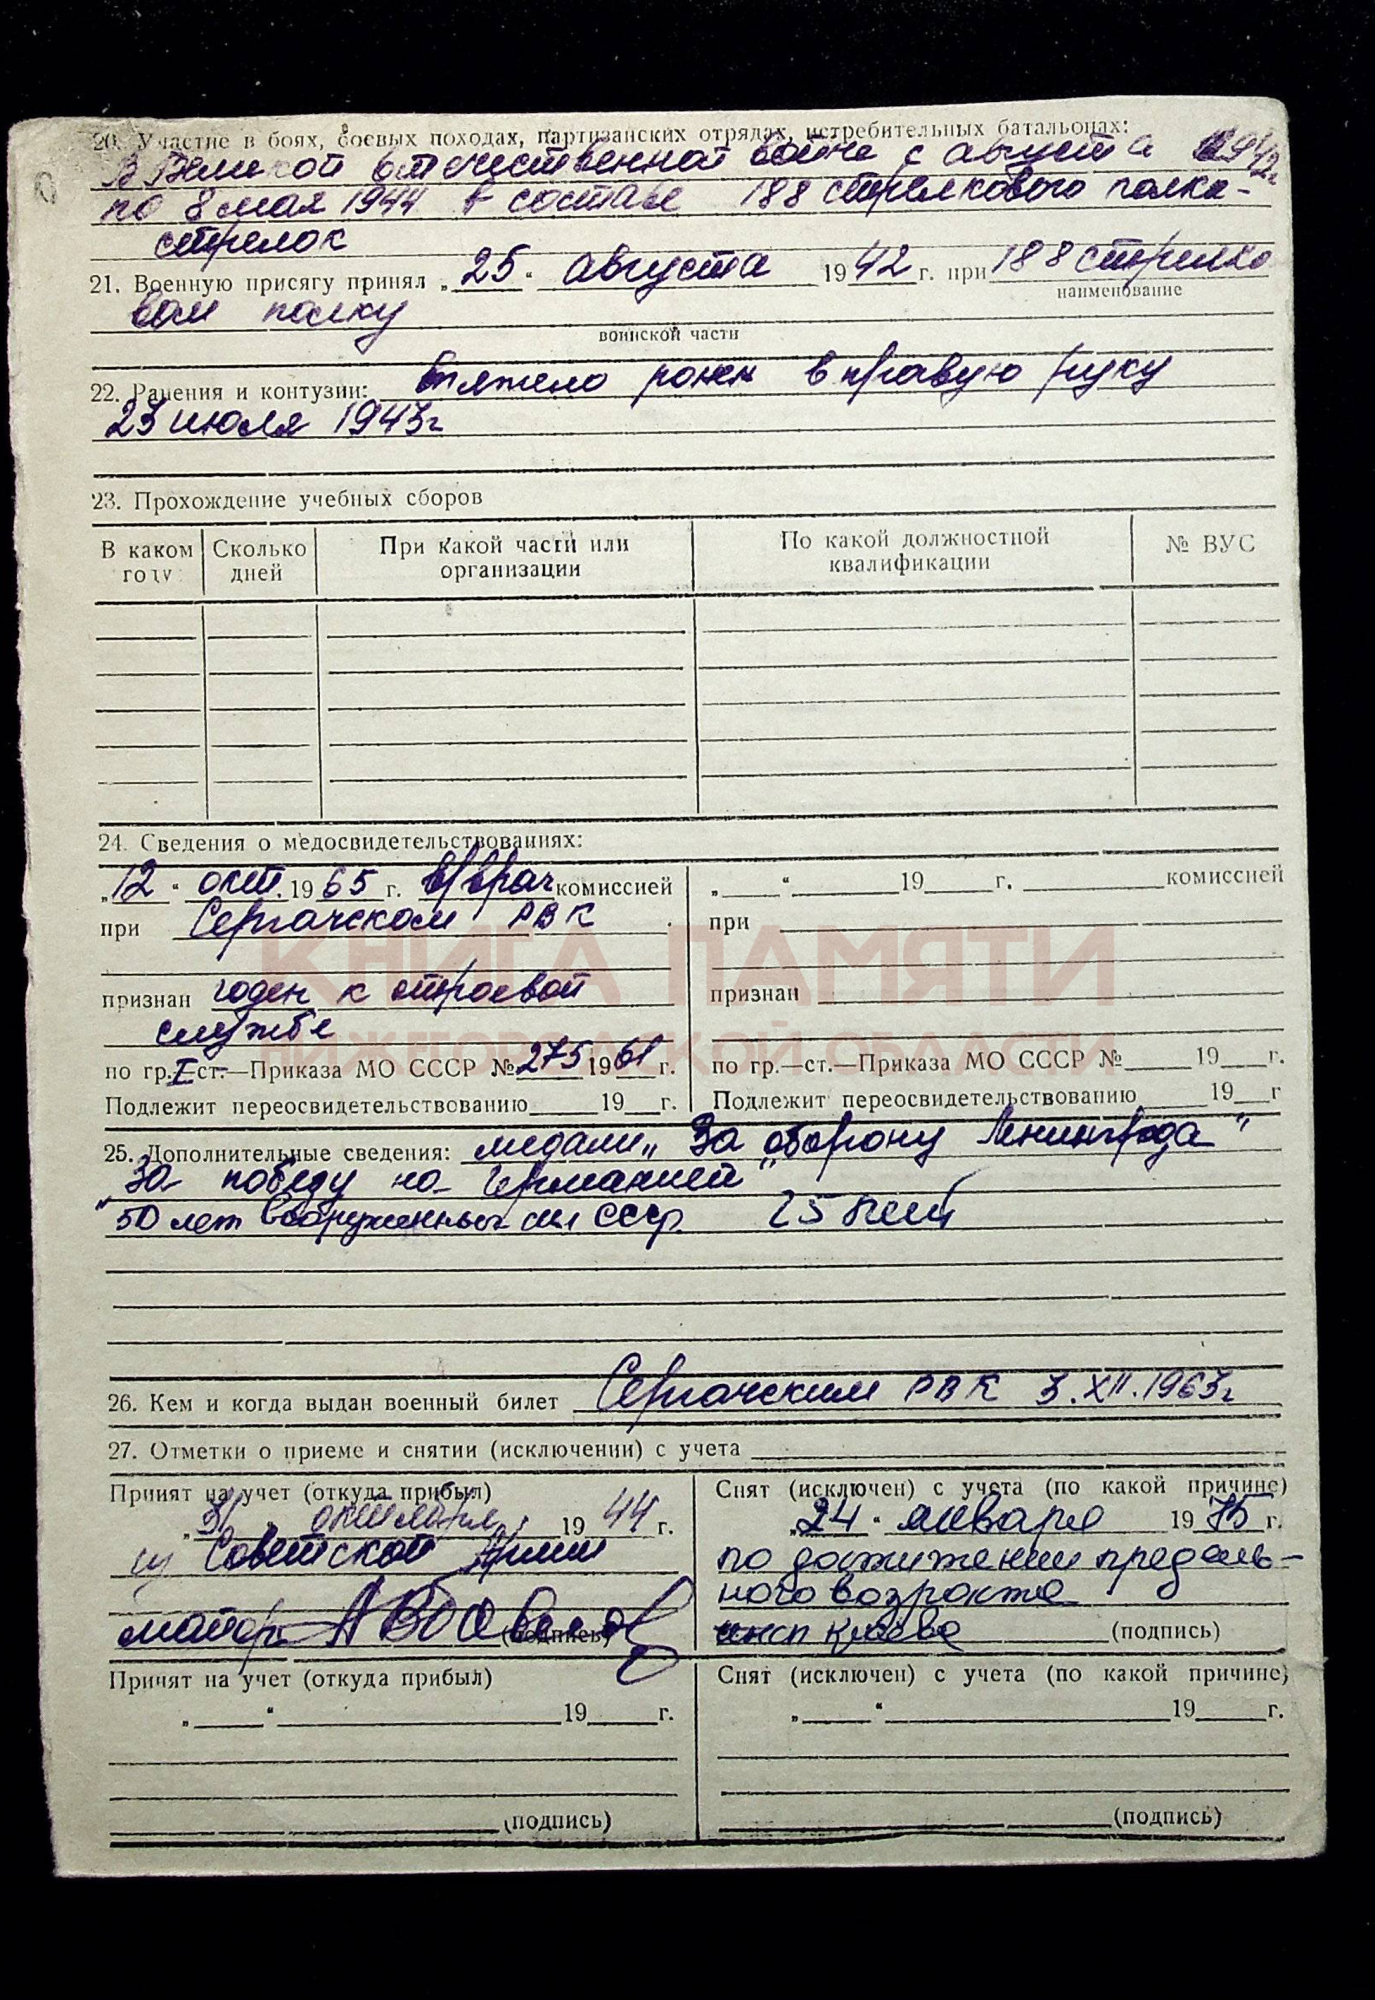 20. Участие в боях, боевых походах, партизанских отрядах, истребительных батальонах:
В Великой отечественной войне с августа 1942г
по 8 мая 1944 в составе 188 стрелкового полка-
стрелок
21. Военную присягу принял „25" августа 1942 г. при 188 стрелко
наименование
вом полку
воинской части
22. Ранения и контузии: тяжело ранен в правую руку
23 июля 1943г
23. Прохождение учебных сборов
В каком году
Сколько дней
При какой части или организации
По какой должностной квалификации
№ ВУС
24. Сведения о медосвидетельствованиях:
„12" окт. 1965 г. врач комиссией
при Сергачском РВК
признан годен к строевой
службе
по гр. I ст.—Приказа МО СССР № 275 1961 г.
Подлежит переосвидетельствованию 19 г.
„ " 19 г. комиссией
при
признан
по гр.—ст.—Приказа МО СССР № 19 г.
Подлежит переосвидетельствованию 19 г
КНИГА ПАМЯТИ
НИЖЕГОРОДСКОЙ ОБЛАСТИ
25. Дополнительные сведения: медали „За оборону Ленинграда"
„За победу над Германией"
50 лет Вооруженных сил СССР 25 лет
26. Кем и когда выдан военный билет Сергачским РВК 3.XII.1963г
27. Отметки о приеме и снятии (исключении) с учета
Принят на учет (откуда прибыл)
„31" октября 1944 г.
из Советской Армии
майор (подпись)
Снят (исключен) с учета (по какой причине)
„24" января 1975 г.
по достижении предель-
ного возраста
(подпись)
Принят на учет (откуда прибыл)
„ " 19 г.
(подпись)
Снят (исключен) с учета (по какой причине)
„ " 19 г.
(подпись)